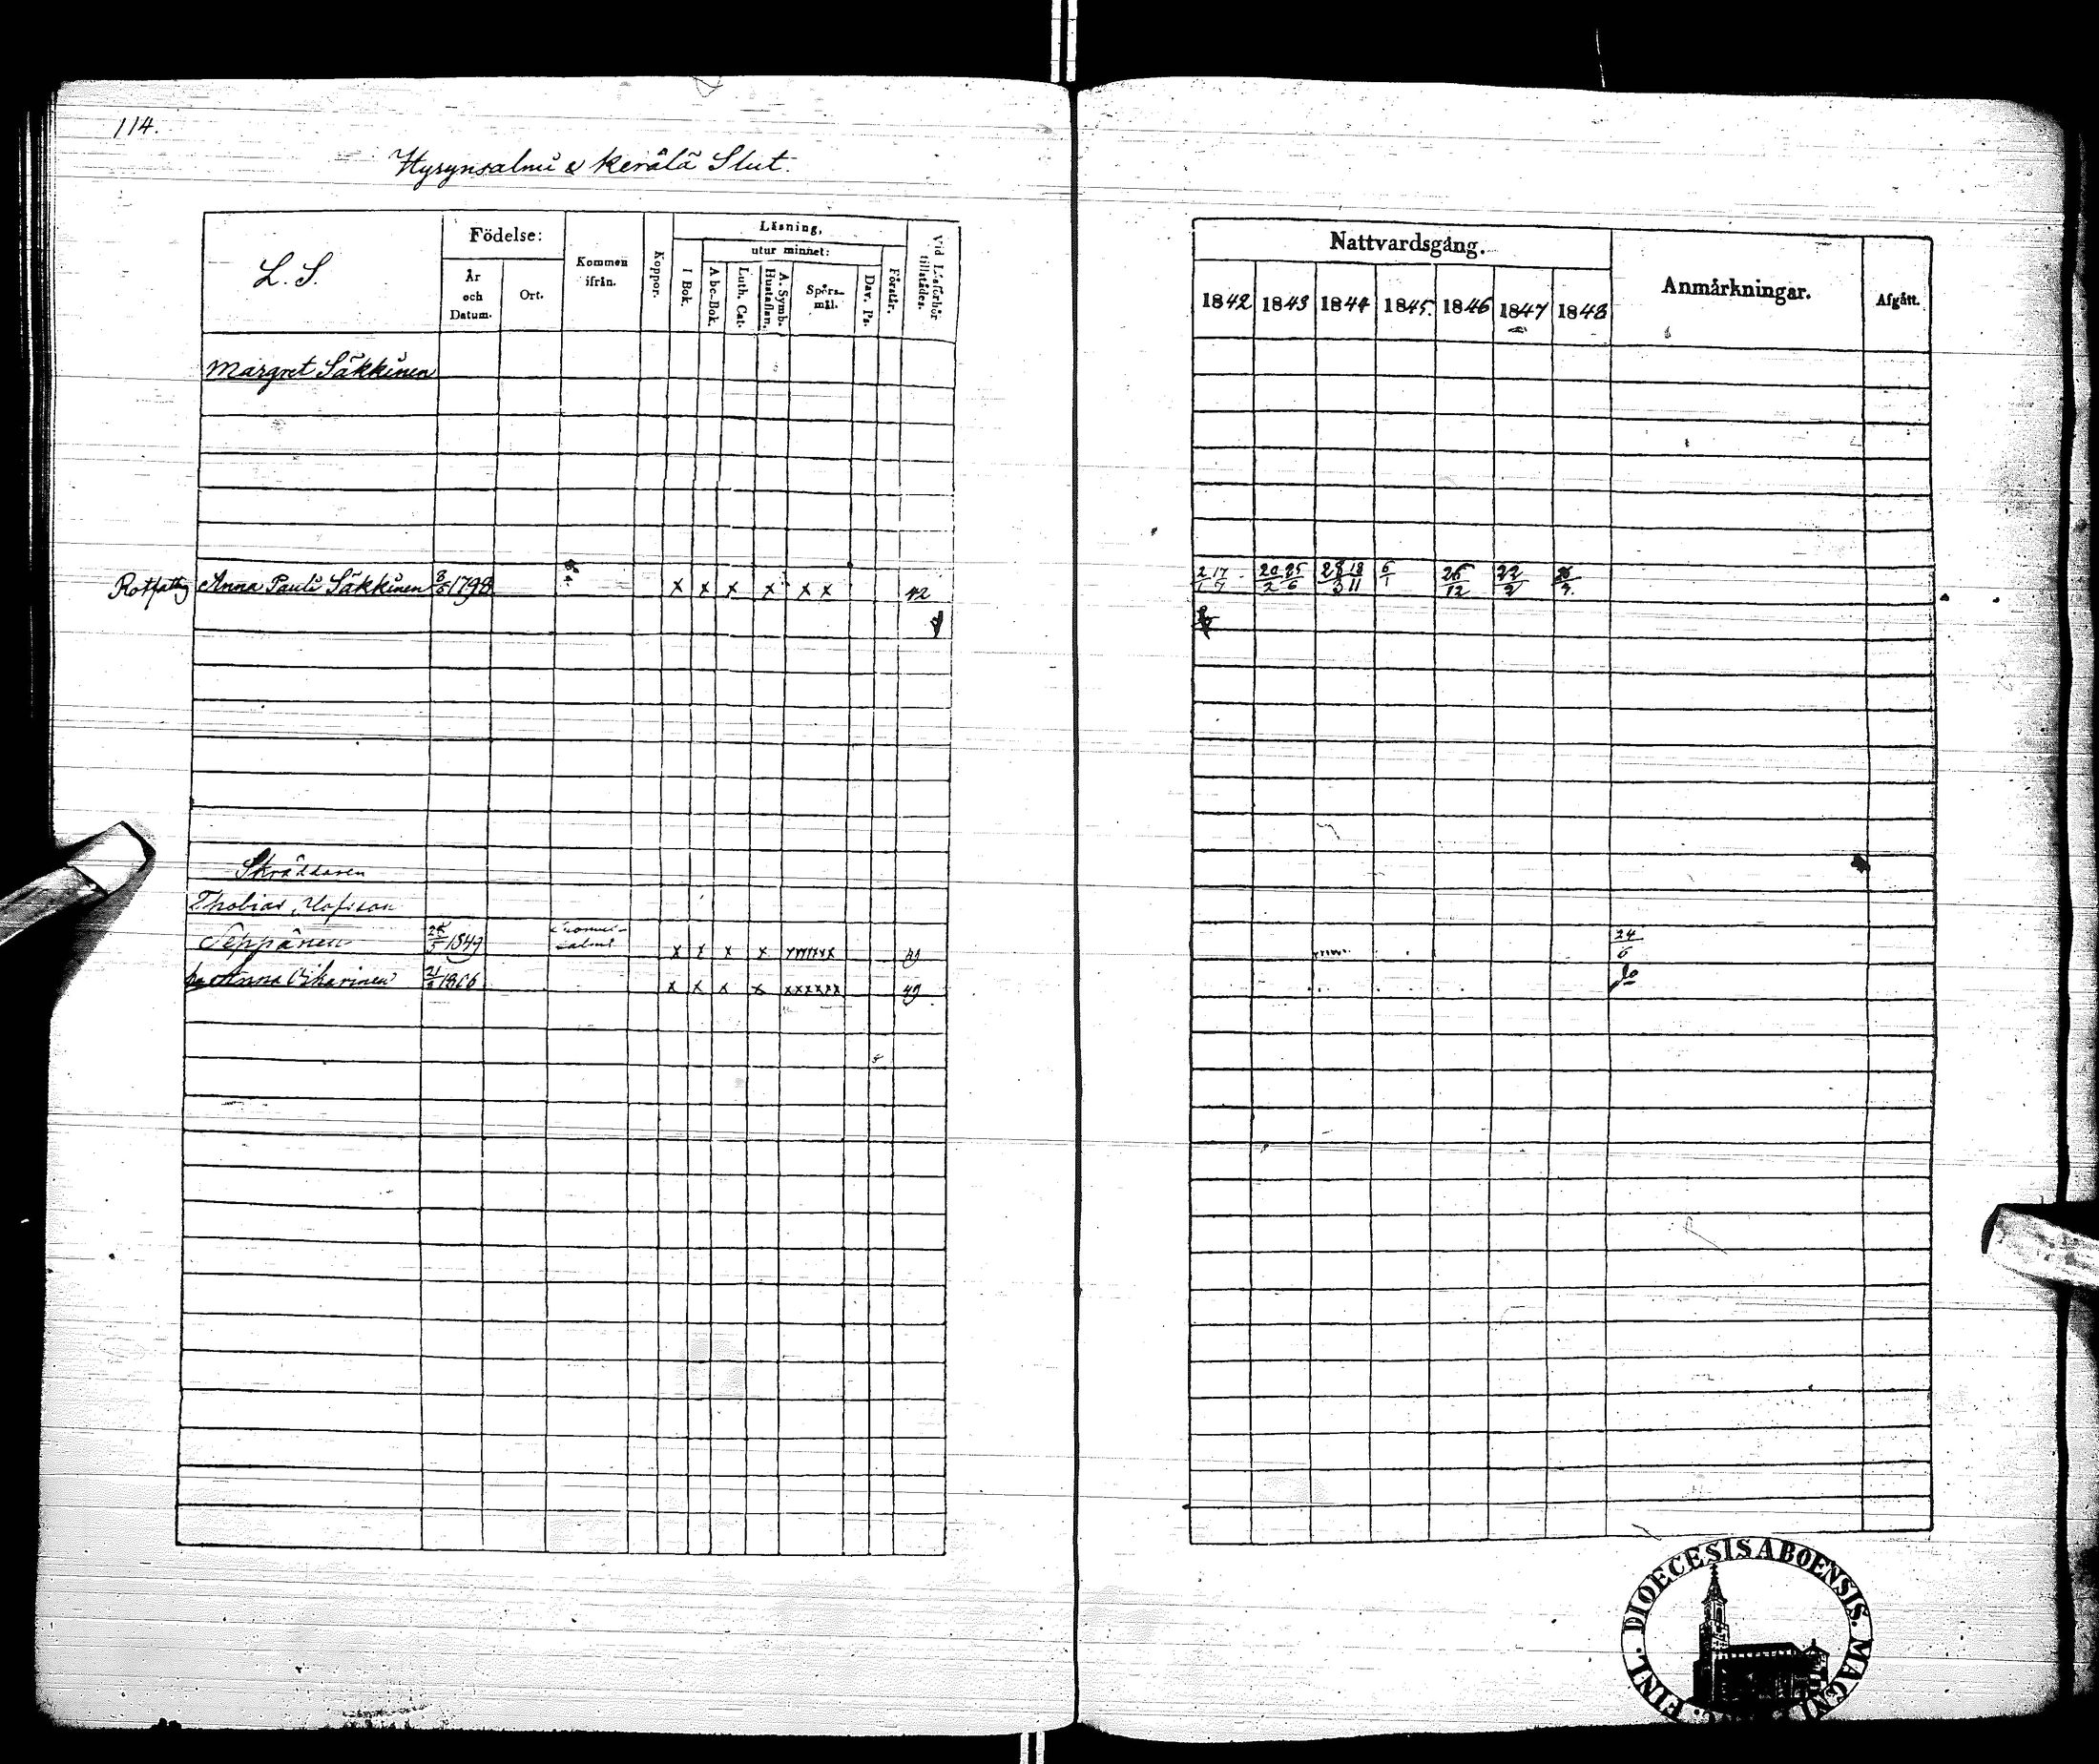 114.
Hyrynsalmi & Kerälä Slut.
L. S.
Födelse:
År och Datum.
Ort.
Kommen ifrån.
Koppor.
Läsning,
I Bok.
utur minnet:
Abc-Bok.
Luth. Cat.
A. Symb. Hustaflan.
Spörsmål.
Dav. Ps.
Förstår.
Vid Läsförhör tillstädes.
Nattvardsgång.
1842 1843 1844 1845. 1846 1847 1848
Anmärkningar.
Afgått.
Margret Säkkinen
Anna Pauli Säkkinen 8/5 1798 x x x x x x 42 2/1 17/5 20/2 25/6 28/3 18/11 6/1 26/12 22/2
Skräddaren
Thobias
Seppänen 1849 x x x x xxxxxx 24/6
Anna x x x x xxxxxx 49
FINL. DIOECESIS ABOENSIS. MAGNI